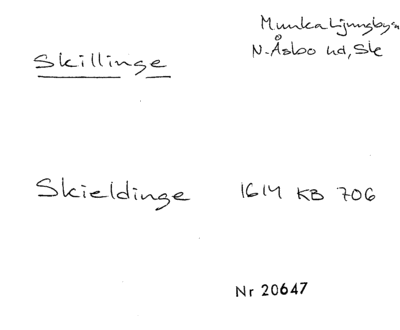 Munka Ljungby sn
Skillinge
N. Åsbo hd, Sk
Skieldinge 1614 KB 706
Nr 20647